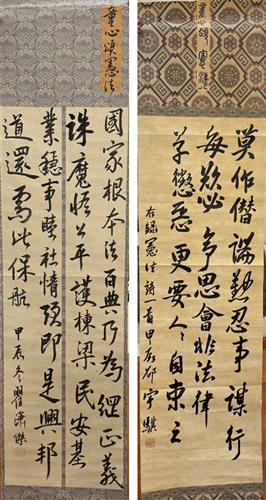 童心頌憲
莫作僭端勤忍事謀行
每欲必多思會非法律
才懲惡更要人々自束之
右録憲法詩一首甲辰邵宇
童心頌憲法
國家根本法百典乃為綱正義
誅魔怪公平護棟梁民安基
業穩事睦社情預即是興邦
道還需此保航
甲辰冬瞿瀟傑